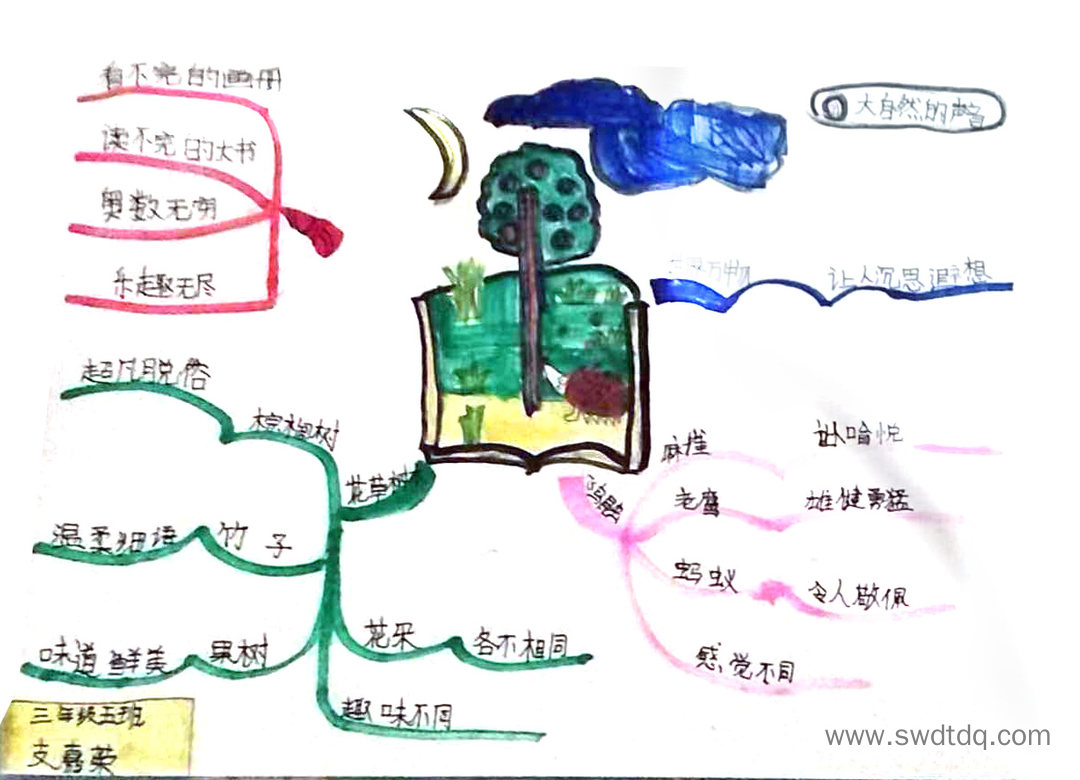 看不完的画册
读不完的大书
奥数无穷
乐趣无尽
大自然的声音
让人沉思遐想
超凡脱俗
棕榈树
花草树
温柔细语
竹子
味道鲜美
果树
花朵
各不相同
趣味不同
麻雀
老鹰
雄健勇猛
蚂蚁
令人敬佩
感觉不同
三年级五班
支嘉荣
www.swdtdq.com